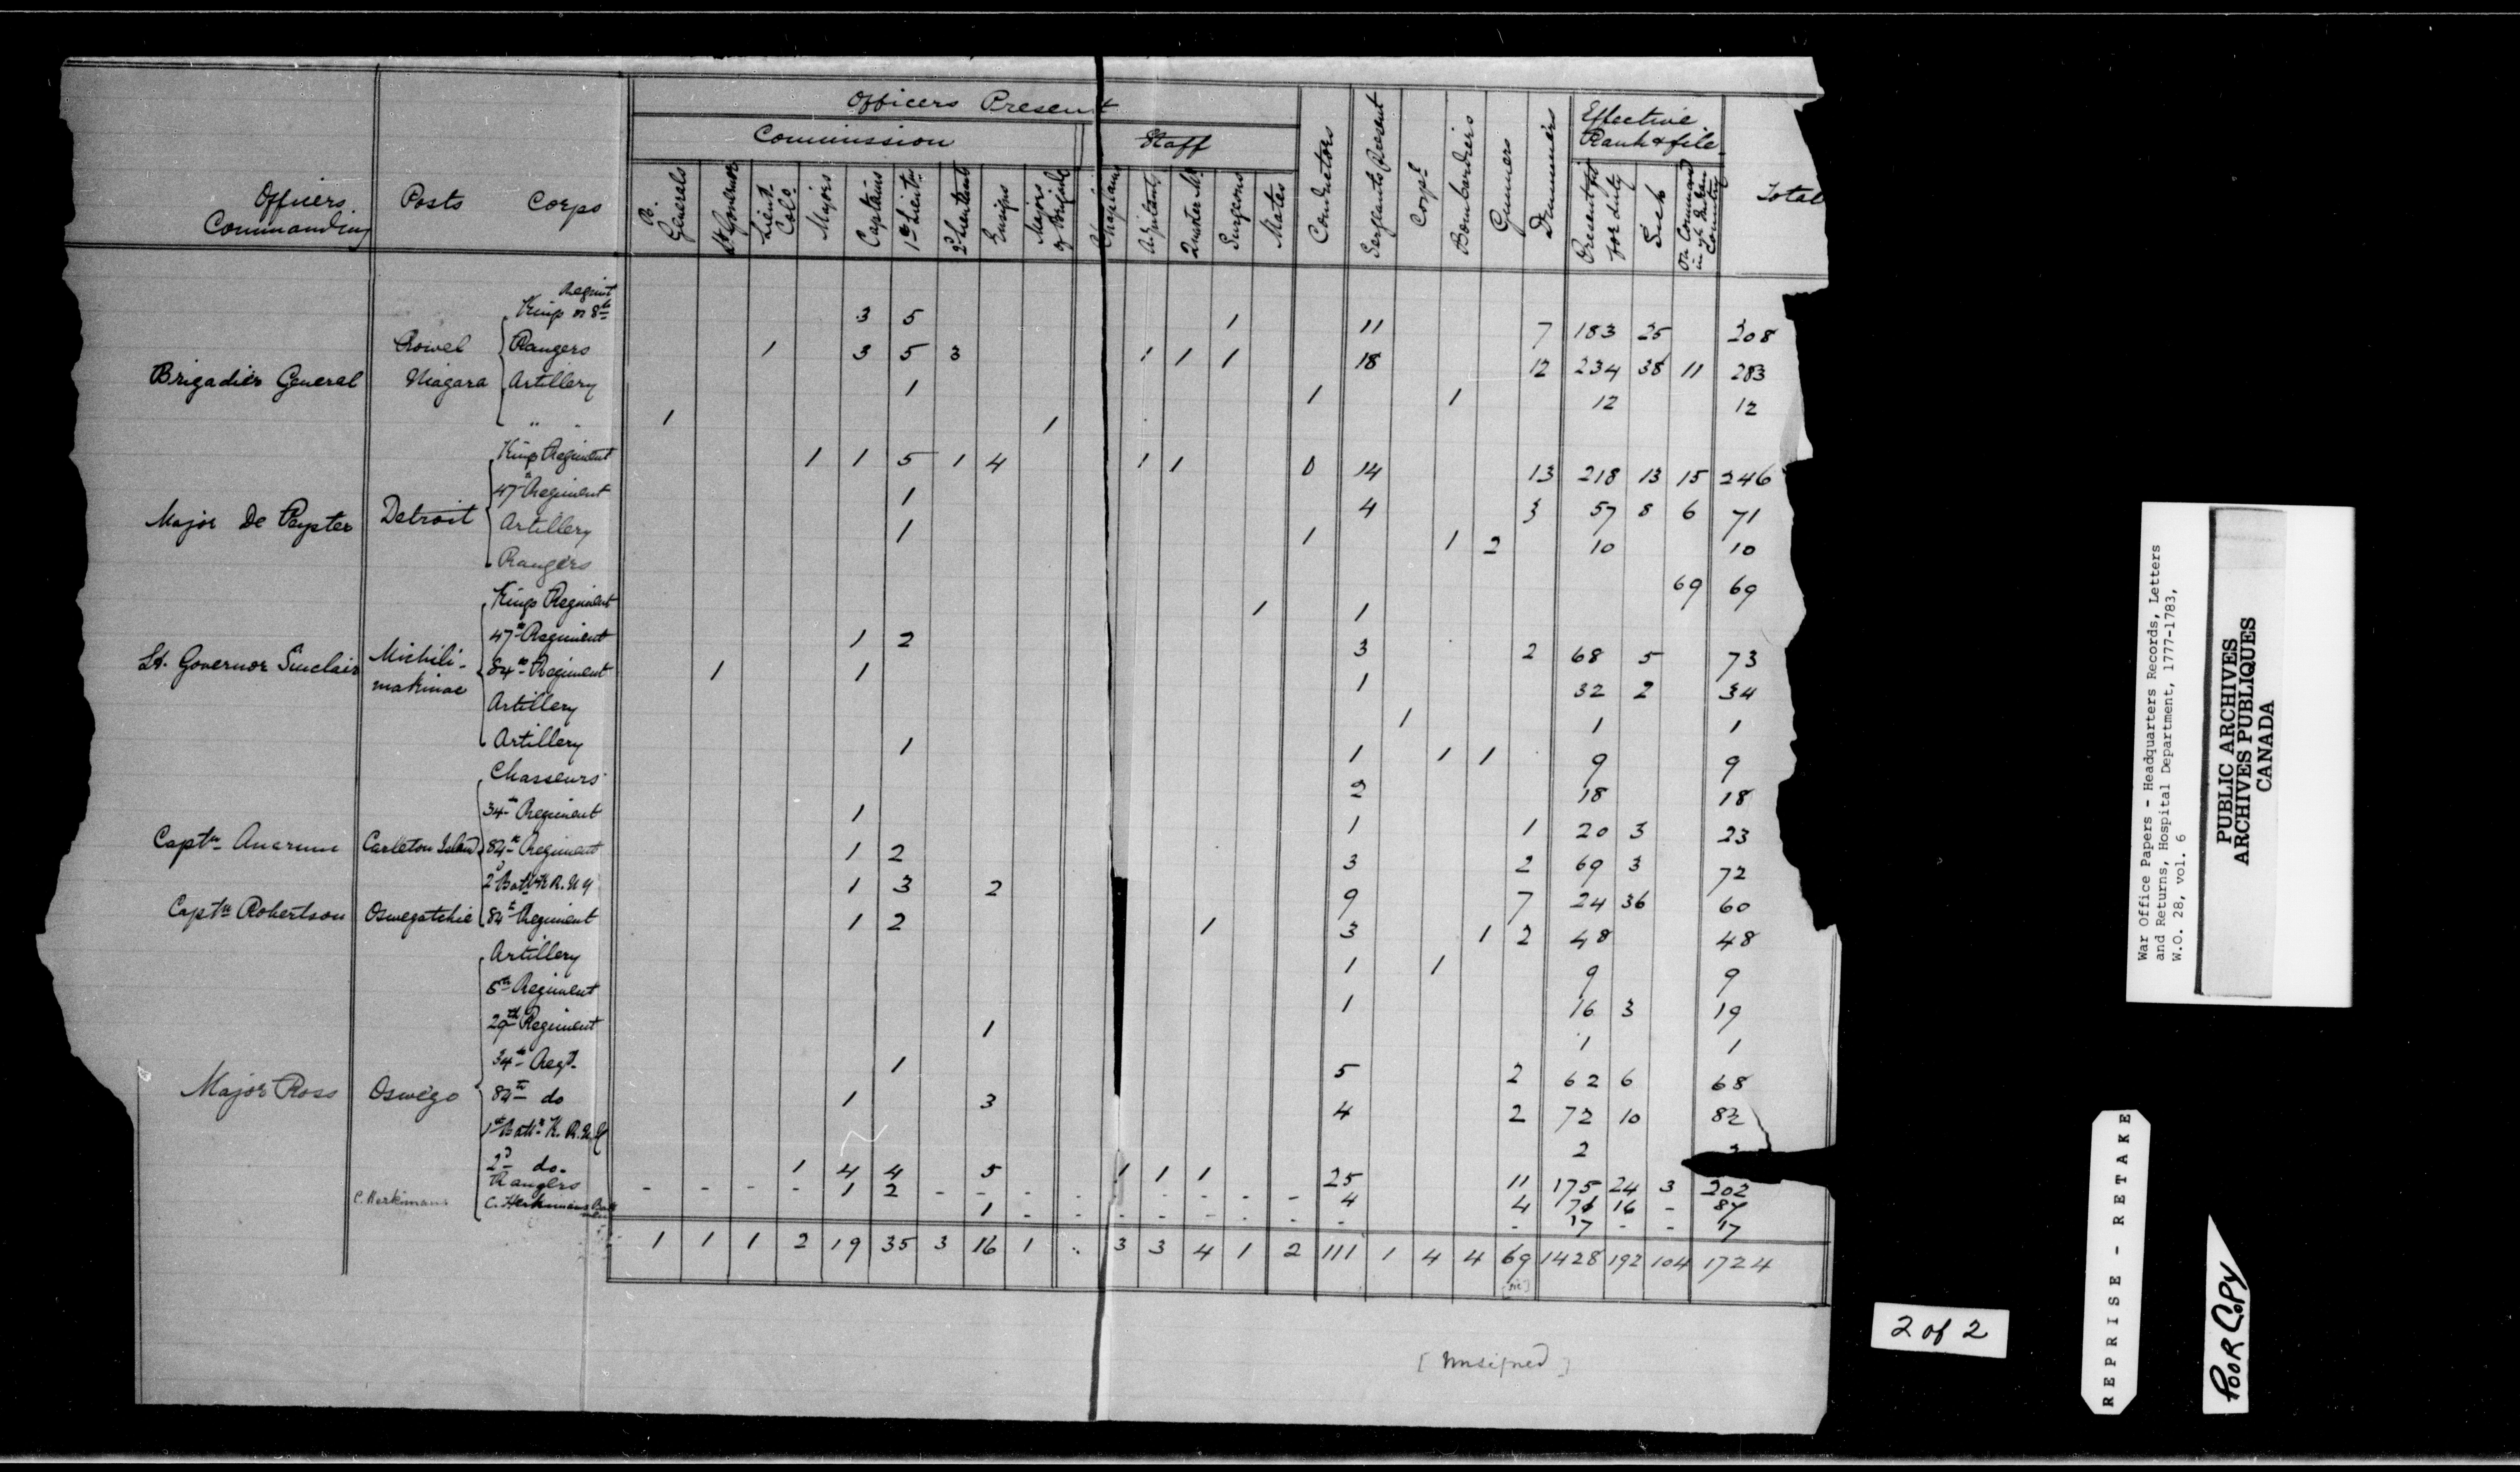 Officers Present
Commission Staff
Effective Rank & file
Officers Commanding Posts Corps B. Generals Lt. Governor Lieut. Cols. Majors Captains 1st Lieuts 2d Lieutenant Ensigns Majors of Brigade Chaplains Adjutants Quarter Mr. Surgeons Mates Conductors Sergeants Present Corpl Bombardiers Gunners Drummers Present fit for duty Sick On Command in ye Indian Country Total
Kings or 8th Regimt 3 5 1 11 7 183 25 208
Rangers 1 3 5 3 1 1 1 18 12 234 38 11 283
Brigadier General Niagara Artillery 1 1 1 12 12
" " 1 1
Kings Regiment 1 1 5 1 4 1 1 0 14 13 218 13 15 246
47th Regiment 1 4 3 57 8 6 71
Major De Peyster Detroit Artillery 1 1 1 2 10 10
Rangers 69 69
Kings Regiment 1 1
47th Regiment 1 2 3 2 68 5 73
Lt. Governor Sinclair Michili-makinac 84th Regiment 1 1 1 32 2 34
Artillery 1 1 1
Artillery 1 1 1 1 9 9
Chasseurs 2 18 18
34th Regiment 1 1 1 20 3 23
Captn Carleton Island 84th Regiment 1 2 3 2 69 3 72
2d Battn K R. N Y 1 3 2 9 7 24 36 60
Captn Robertson Oswegatchie 84th Regiment 1 2 1 3 1 2 48 48
Artillery 1 1 9 9
8th Regiment 1 16 3 19
29th Regiment 1 1 1
34th Regt. 1 5 2 62 6 68
Major Ross Oswego 84th do 1 3 4 2 72 10 82
1st Battn K. R. N Y 2
2d do. 1 4 4 5 1 1 1 25 11 175 24 3 202
Rangers - - - - 1 2 - - - - - - - - - 4 4 71 16 - 87
C. Herkimans C. Herkimans 1 - - - - - - - - - 17 - - 17
1 1 1 2 19 35 3 16 1 .. 3 3 4 1 2 111 1 4 4 69 1428 192 104 1724
[sic]
[Unsigned]
War Office Papers - Headquarters Records, Letters
and Returns, Hospital Department, 1777-1783,
W.O. 28, vol. 6
PUBLIC ARCHIVES
ARCHIVES PUBLIQUES
CANADA
2 of 2
REPRISE - RETAKE
POOR COPY